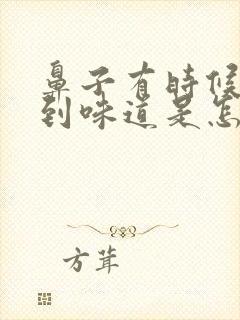 鼻子有时候
到味道是怎
方茸